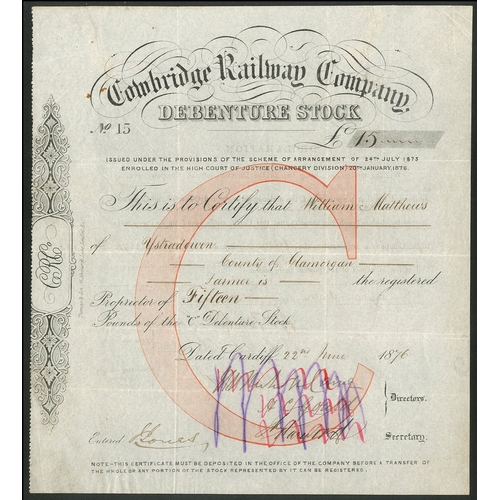 Cowbridge Railway Company.
DEBENTURE STOCK
No 15
£ 15
ISSUED UNDER THE PROVISIONS OF THE SCHEME OF ARRANGEMENT OF 24TH JULY 1875
ENROLLED IN THE HIGH COURT OF JUSTICE (CHANCERY DIVISION) 20TH JANUARY, 1876.
This is to Certify that William Matthews
of Ystradowen
County of Glamorgan
Farmer is the registered
Proprietor of Fifteen
Pounds of the "C" Debenture Stock.
C
Dated Cardiff 22nd June 1876
Directors.
Entered
Secretary.
NOTE – THIS CERTIFICATE MUST BE DEPOSITED IN THE OFFICE OF THE COMPANY BEFORE A TRANSFER OF
THE WHOLE OR ANY PORTION OF THE STOCK REPRESENTED BY IT CAN BE REGISTERED.